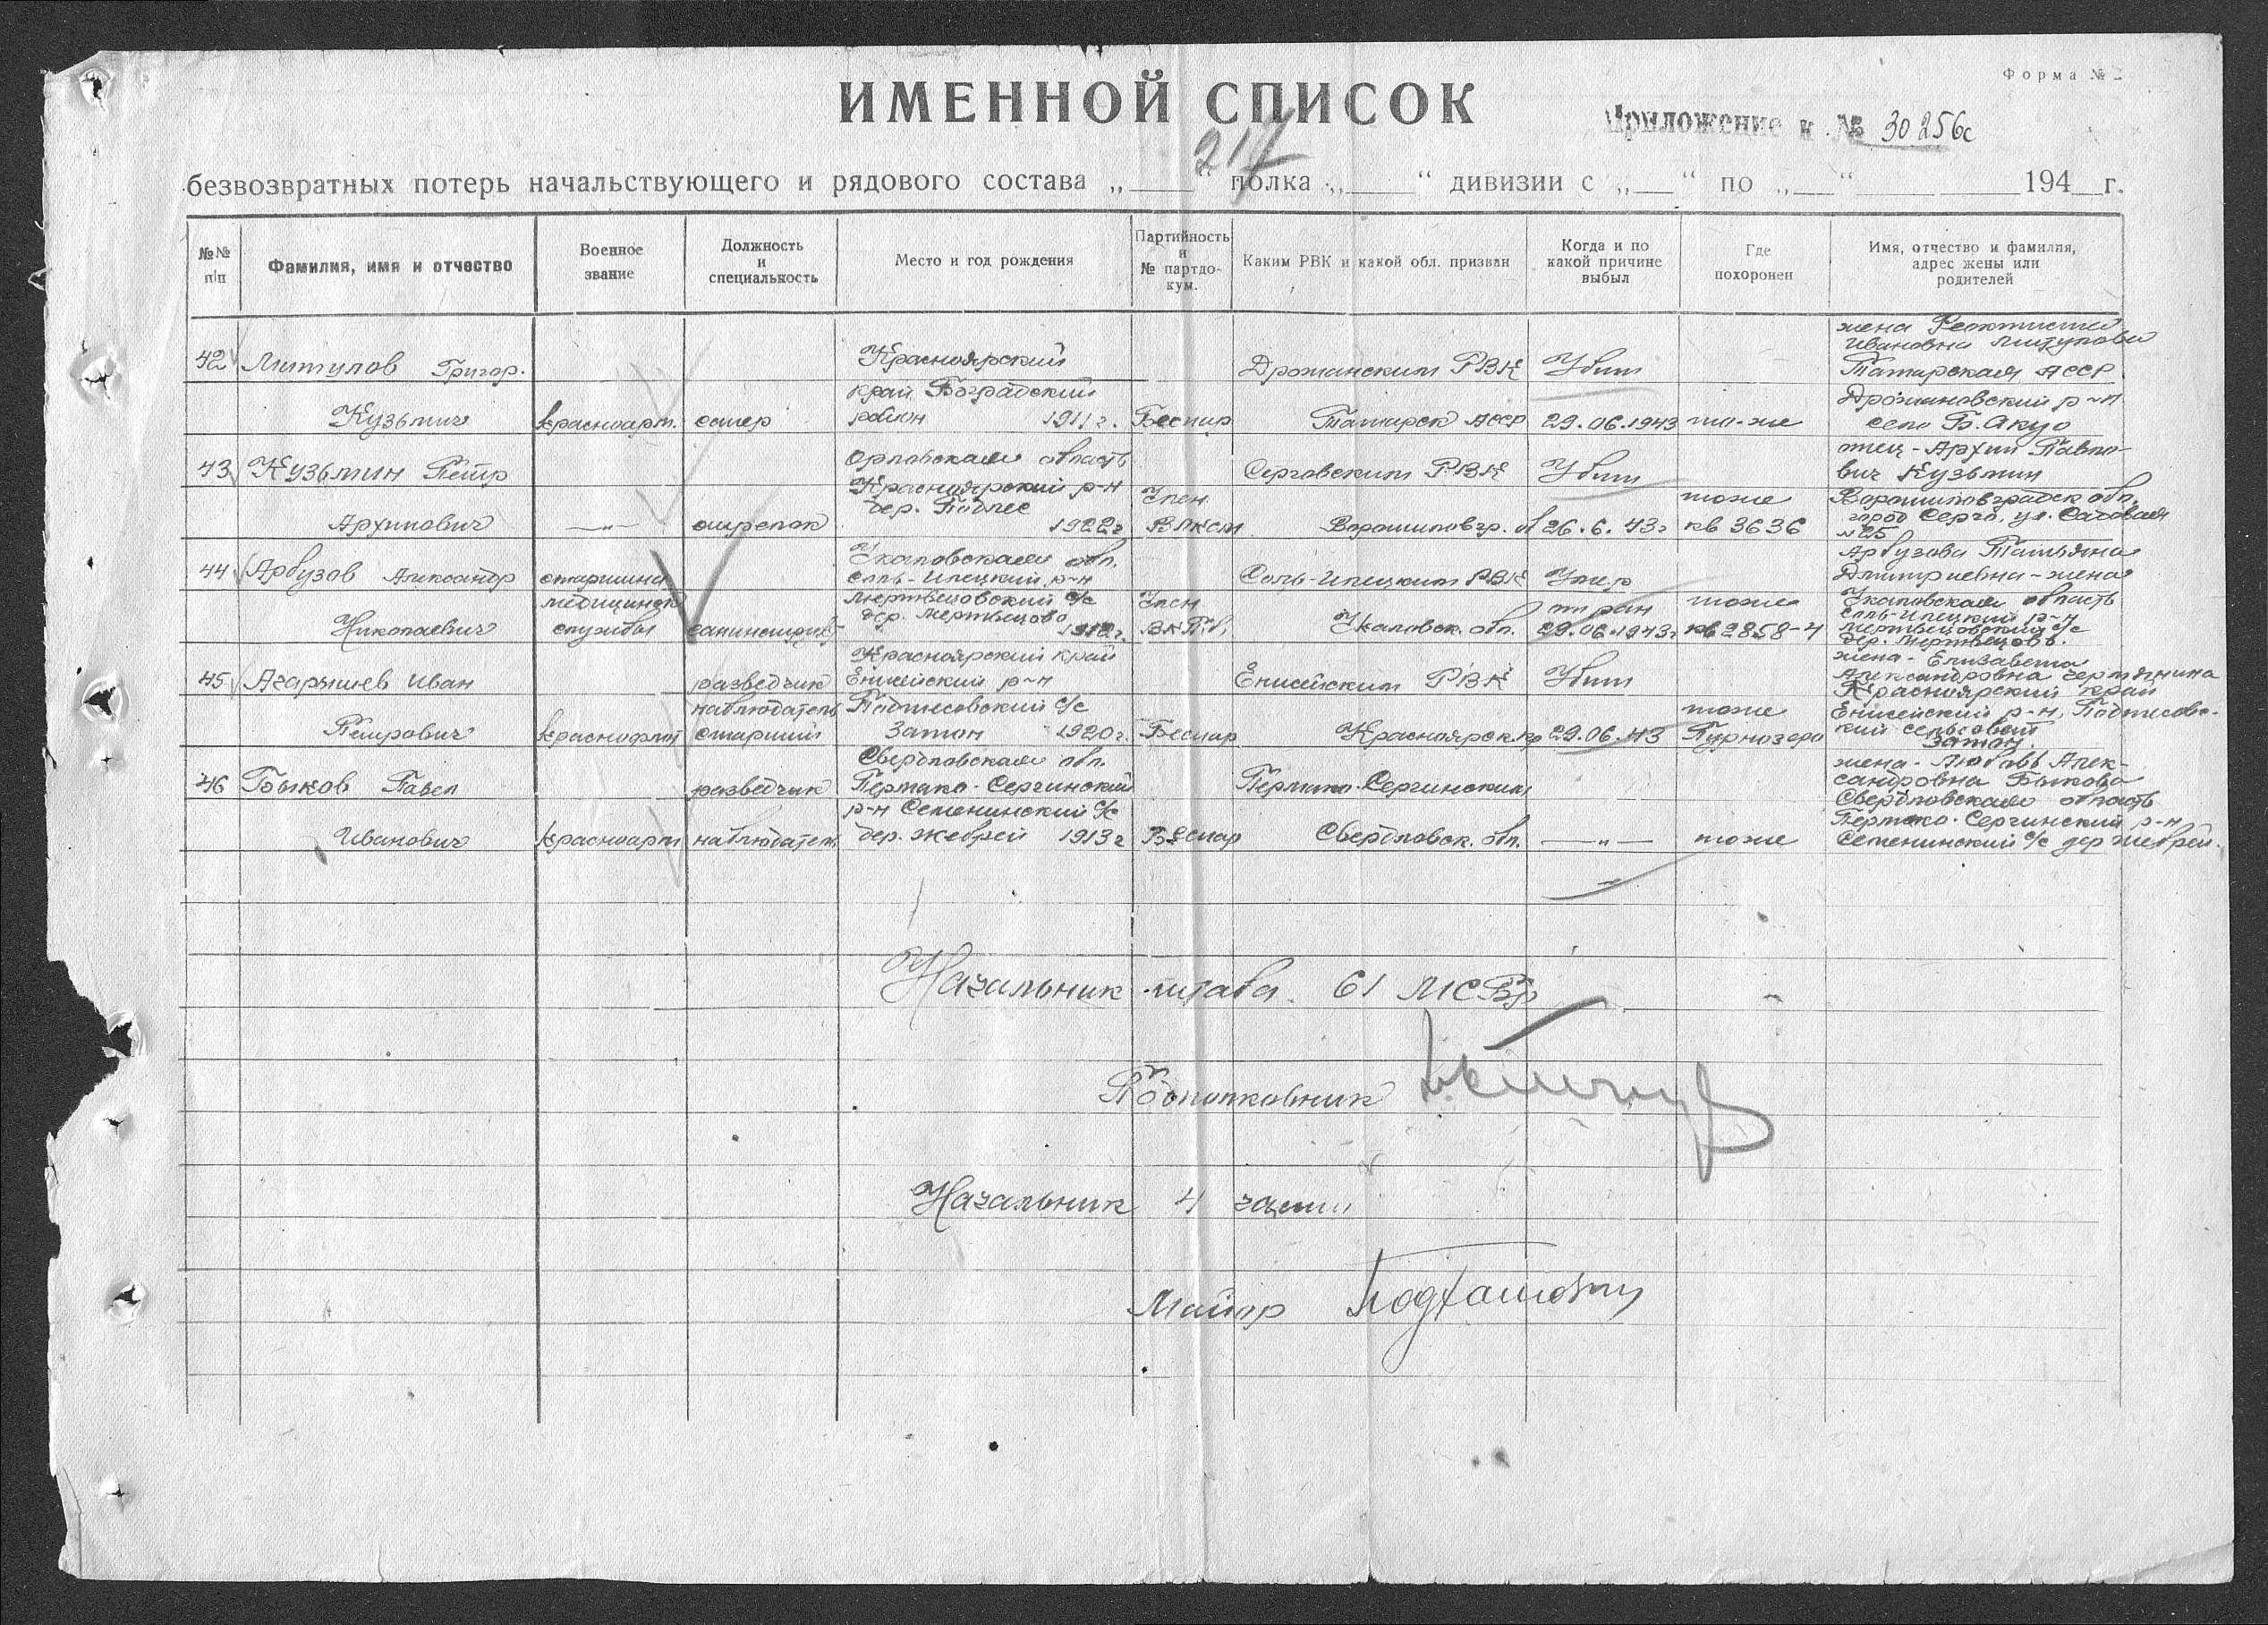 Форма №
ИМЕННОЙ СПИСОК
Приложение к № 30256с
217
безвозвратных потерь начальствующего и рядового состава „ “ полка „ “ дивизии с „ “ по „ “ 194 г.
№№ п/п
Фамилия, имя и отчество
Военное звание
Должность и специальность
Место и год рождения
Партийность и № партдокум.
Каким РВК и какой обл. призван
Когда и по какой причине выбыл
Где похоронен
Имя, отчество и фамилия, адрес жены или родителей
42 Митулов Григор.
Кузьмич
красноарм.
сапер
Красноярский
край Боградский
район 1911 г.
Беспар
Дрожанским РВК
Татарск АССР
Убит
29.06.1943
то-же
жена
Ивановна Митулова
Татарская АССР.
Дрожановский р-н
село Б. Акус
43 Кузьмин Петр
Архипович
—„—
стрелок
Орловская область
Красноярский р-н
дер. Подлес
1922 г
Член
ВЛКСМ
Серговским РВК
Ворошиловгр. об
Убит
26.6.43 г
тоже
кв 3636
отец - Архип Павло-
вич Кузьмин
Ворошиловградск обл.
город Серго, ул. Садовая
№25
44 Арбузов Александр
Николаевич
старшина
медицинск
службы
санинструк
Чкаловская обл.
Соль-Илецкий р-н
Мертвецовский с/с
дер. Мертвецово
1912 г.
Член
ВКП.б.
Соль-Илецким РВК
Чкаловск. обл.
Умер
от ран
29.06.1943 г
тоже
кв 2858-4
Арбузова Татьяна
Дмитриевна - жена
Чкаловская область
Соль-Илецкий р-н
Мертвецовский с/с
дер. Мертвецово.
45 Агарышев Иван
Петрович
краснофлот
разведчик
наблюдатель
старший
Красноярский край
Енисейский р-н
Подтесовский с/с
Затон 1920 г.
Беспар
Енисейским РВК
Красноярск. кр
Убит
29.06.43
тоже
Гурнозеро
жена - Елизавета
Александровна
Красноярский край
Енисейский р-н, Подтесовс-
кий сельсовет
Затон.
46 Быков Павел
Иванович
красноарм
разведчик
наблюдатель
Свердловская обл.
Пермако-Сергинский
р-н Семенинский с/с
дер. Жеврей 1913 г
Беспар
Пермако-Сергинским
Свердловск. обл.
—„—
тоже
жена - Любовь Алек-
сандровна Быкова
Свердловская область
Пермако-Сергинский р-н
Семенинский с/с дер Жеврей.
Начальник штаба 61 МСБр
Подполковник
Начальник 4 части
Майор